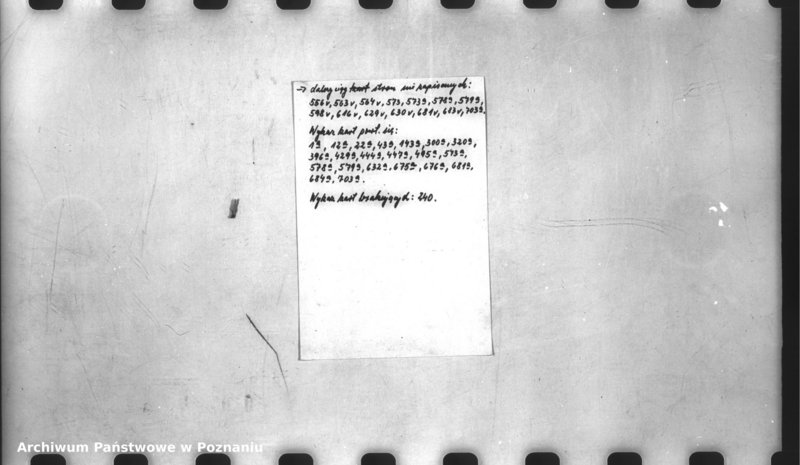 → dalszy ciąg kart stron nie zapisanych:
556v, 563v, 564v, 573, 573a, 578a, 579a,
598v, 616v, 629v, 630v, 681v, 683v, 703a.
Wykaz kart powt. się:
1a, 12a, 22a, 43a, 193a, 300a, 320a,
396a, 429a, 444a, 447a, 495a, 573a,
578a, 579a, 632a, 675a, 676a, 681a,
684a, 703a.
Wykaz kart brakujących: 240.
Archiwum Państwowe w Poznaniu